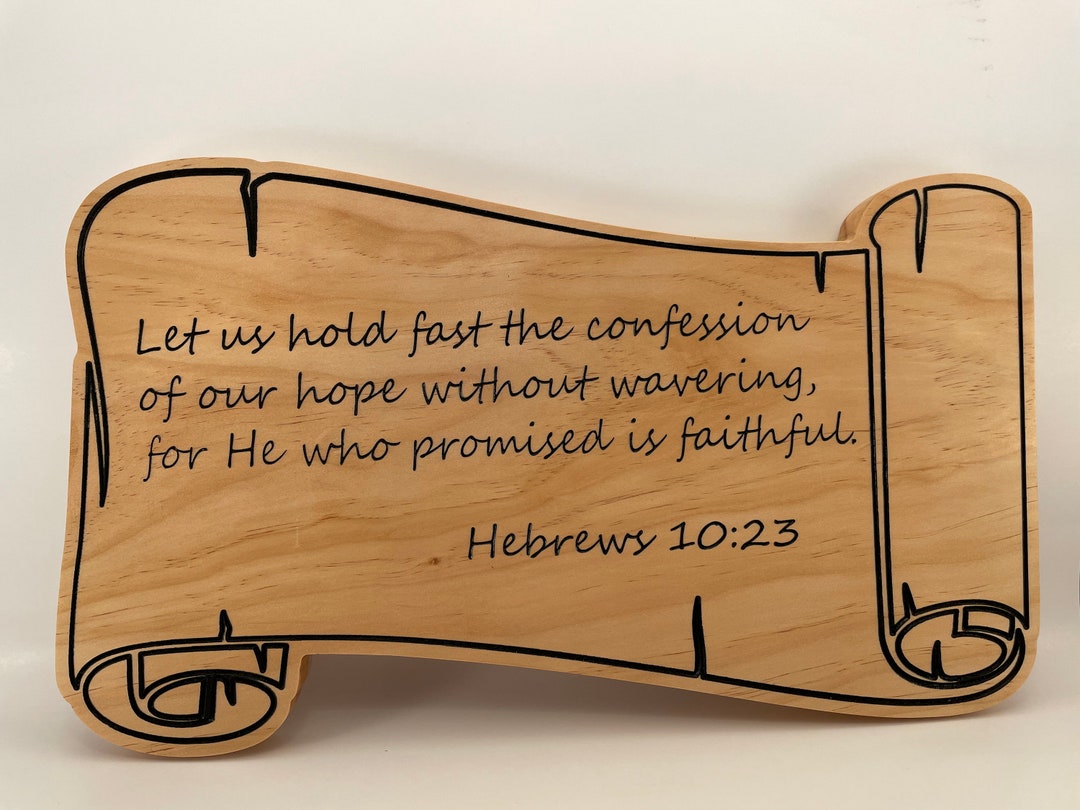 Let us hold fast the confession
of our hope without wavering,
for He who promised is faithful.
Hebrews 10:23